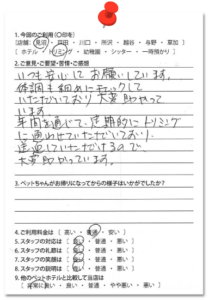 1.今回のご利用(○印を)
[店舗: 見沼 ・ 戸田 ・ 川口 ・ 所沢 ・ 越谷 ・ 与野 ・ 草加 ]
[ ホテル ・ トリミング ・ 幼稚園 ・ シッター ・ 一時預かり ]
2.ご意見・ご要望・苦情・ご感想
いつも安心してお願いしています。
体調も細めにチェックして
いただいており大変助かって
います。
年間を通じて、定期的にトリミング
に通わせていただいており
送迎していただけるので、
大変助かっています。
3.ペットちゃんがお帰りになってからの様子はいかがでしたか?
4.ご利用料金は [ 高い ・ 普通 ・ 安い ]
5.スタッフの対応は [ 良い ・ 普通 ・ 悪い ]
6.スタッフの礼節は [ 良い ・ 普通 ・ 悪い ]
7.スタッフの笑顔は [ 良い ・ 普通 ・ 悪い ]
8.スタッフの説明は [ 良い ・ 普通 ・ 悪い ]
9.他のペットホテルと比較して当店は
[ 非常に良い ・ 良い ・ 普通 ・ やや悪い ・ 悪い ]